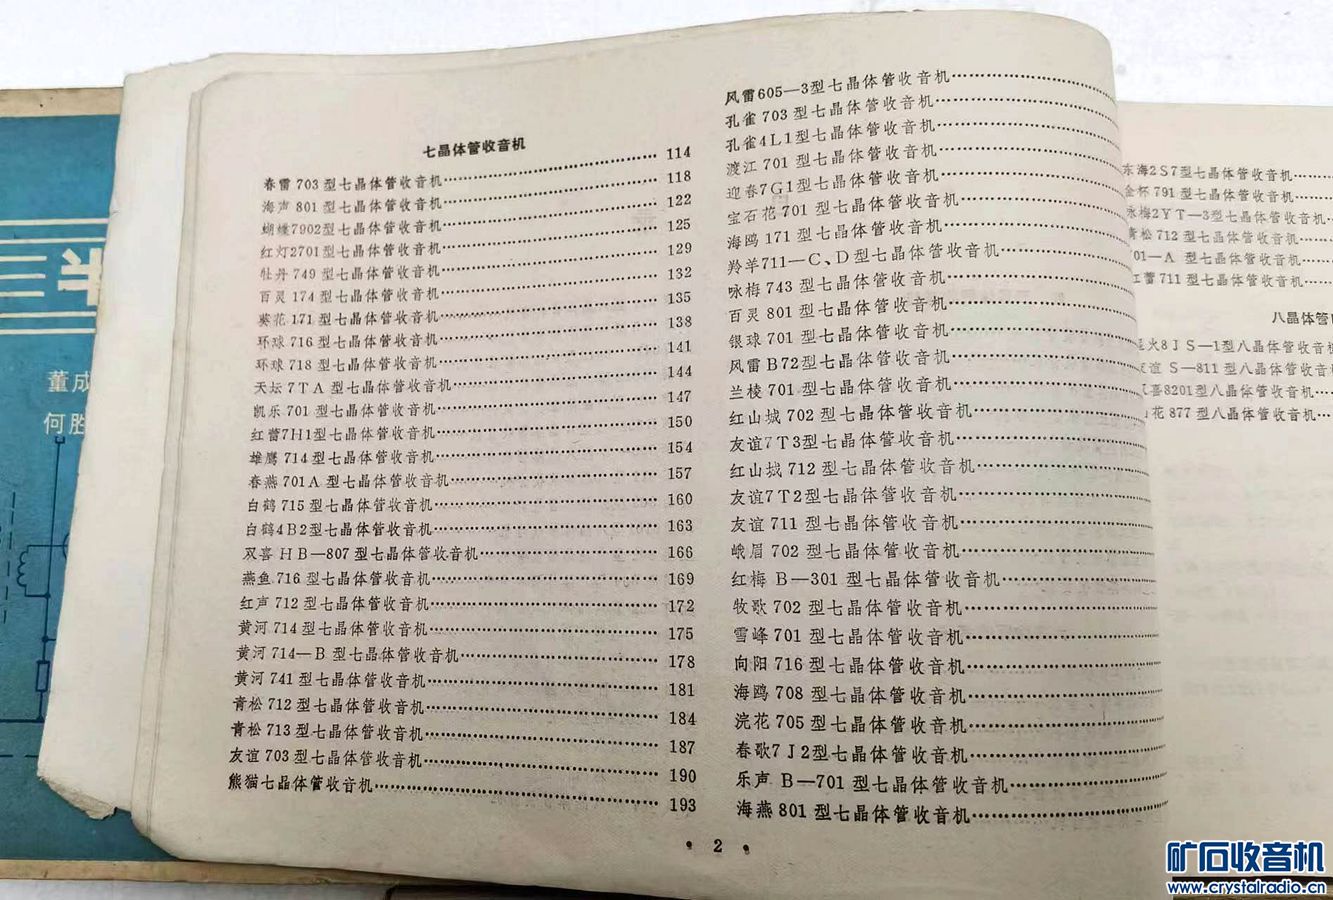 七晶体管收音机
春雷 703 型七晶体管收音机…………114
海声 801 型七晶体管收音机…………118
蝴蝶7902型七晶体管收音机…………122
红灯2701型七晶体管收音机…………125
牡丹 749 型七晶体管收音机…………129
百灵 174 型七晶体管收音机…………132
葵花 171 型七晶体管收音机…………135
环球 716 型七晶体管收音机…………138
环球 718 型七晶体管收音机…………141
天坛 7TA 型七晶体管收音机…………144
凯乐 701 型七晶体管收音机…………147
红蕾7H1型七晶体管收音机…………150
雄鹰 714 型七晶体管收音机…………154
春燕 701A 型七晶体管收音机…………157
白鹤 715 型七晶体管收音机…………160
白鹤4B2型七晶体管收音机…………163
双喜 HB—807 型七晶体管收音机…………166
燕鱼 716 型七晶体管收音机…………169
红声 712 型七晶体管收音机…………172
黄河 714 型七晶体管收音机…………175
黄河 714—B 型七晶体管收音机…………178
黄河 741 型七晶体管收音机…………181
青松 712 型七晶体管收音机…………184
青松 713 型七晶体管收音机…………187
友谊 703 型七晶体管收音机…………190
熊猫七晶体管收音机…………193
风雷605—3型七晶体管收音机…………
孔雀 703 型七晶体管收音机…………
孔雀4L1型七晶体管收音机…………
渡江 701 型七晶体管收音机…………
迎春7G1型七晶体管收音机…………
宝石花 701 型七晶体管收音机…………
海鸥 171 型七晶体管收音机…………
羚羊711—C、D型七晶体管收音机…………
咏梅 743 型七晶体管收音机…………
百灵 801 型七晶体管收音机…………
银球 701 型七晶体管收音机…………
风雷B72型七晶体管收音机…………
兰棱 701 型七晶体管收音机…………
红山城 702 型七晶体管收音机…………
友谊7T3型七晶体管收音机…………
红山城 712 型七晶体管收音机…………
友谊7T2型七晶体管收音机…………
友谊 711 型七晶体管收音机…………
峨眉 702 型七晶体管收音机…………
红梅 B—301 型七晶体管收音机…………
牧歌 702 型七晶体管收音机…………
雪峰 701 型七晶体管收音机…………
向阳 716 型七晶体管收音机…………
海鸥 708 型七晶体管收音机…………
浣花 705 型七晶体管收音机…………
春歌7J2型七晶体管收音机…………
乐声 B—701 型七晶体管收音机…………
海燕 801 型七晶体管收音机…………
• 2 •
东海2S7型七晶体管收音机……
金杯 791 型七晶体管收音机……
咏梅2YT—3型七晶体管收音机……
青松 712 型七晶体管收音机……
701—A 型七晶体管收音机……
红蕾 711 型七晶体管收音机……
八晶体管
火8JS—1型八晶体管收音机
友谊 S—811 型八晶体管收音机
喜8201型八晶体管收音机……
花 877 型八晶体管收音机……
三半
董成
何胜
矿石收音机
www.crystalradio.cn